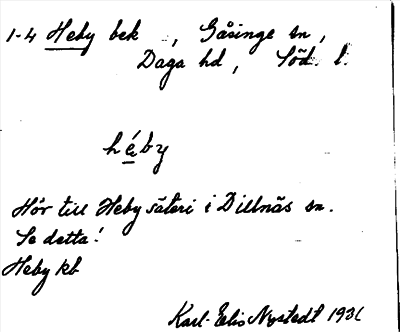 1-4 Heby bek , Gåsinge sn,
Daga hd, Söd. l.
héby
Hör till Heby säteri i Dillnäs sn.
Se detta!
Heby kb
Karl-Eric Nystedt 1931